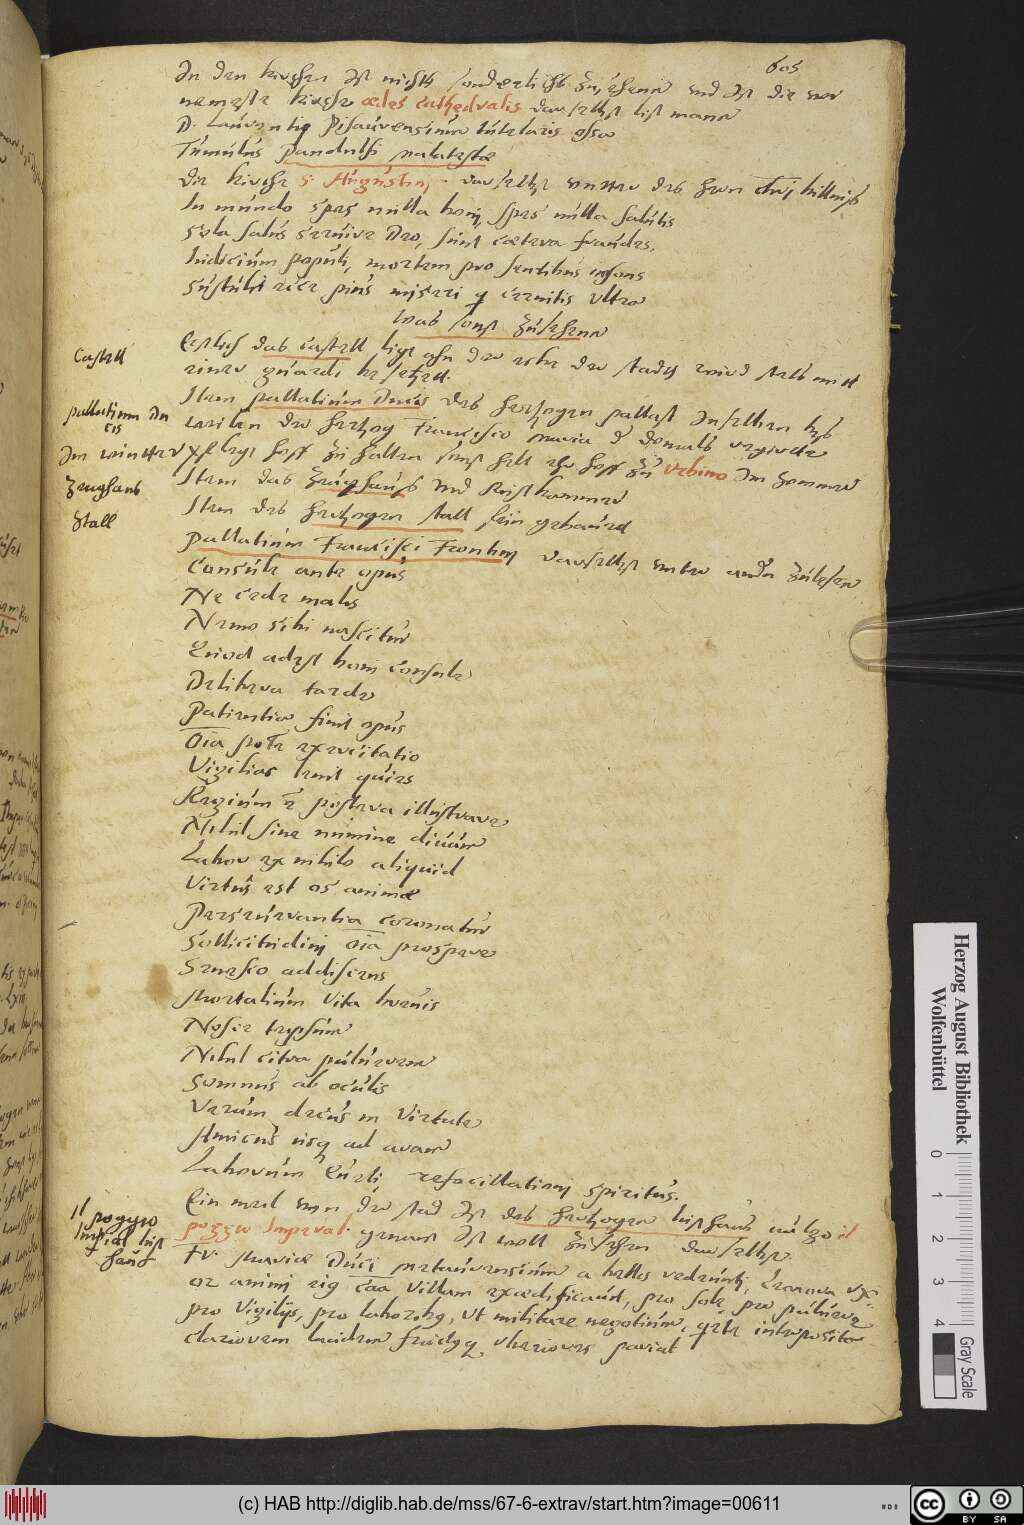 605
In den kirchen ist nichts sonderlichs zusehenn und ist die vor
nemeste kirche ædes cathedralis daselbst list mann
D. Laurentio Pisaurensium tutelaris ossa
Tumulus Pandulfi malatestæ
die kirche S. Augustini daselbst unter des hern christi biltnus
In mundo spes nulla boni, spes nulla salutis
Sola salus servire Deo, sunt cætera fraudes.
Iudicium populi, mortem pro sentibus insons
Sustuli ecce pius miseri q cernitis ultro
Was sonst zusehenn
Castell
Erstlich das Castell ligt ahn der ecke der stadtt wird stets mitt
einer guardi besetzett.
Pallatium Du
cis
Item pallatium Ducis des hertzogen pallast Inselben hatt
weilen der hertzog Francisco Maria der domals regirete
Im winter
hoff zu halten sonst helt ehr hoff zu Urbino Im Sommer
Zeughaus
Item das Zeughaus und Rustkammer
Stall
Item des hertzogen stall fein gebauet
Pallatium Francisci Frontini daselbst unter andern zulesen
Consule ante opus
Ne cede malis
Nemo sibi nascitur
Quod adest boni consule
Delibera tarde
Patientia sinit opus
Oīa potē exercitatio
Vigilias lenit quies
Regium ē postera illustrare
Nihil sine numine divum
Labor ex nihilo aliquid
Virtus est os animæ
Perseverantia coronatur
Sollicitudini oīa prospere
Senesco addiscens
Mortalium vita brevis
Nosce teipsum
Nihil citra pulverem
Somnus ab oculis
Verum decus in virtute
Amicus usq ad aram
Laborum Quæsti, refocillationi spiritus.
Il poggio
Imperial lust
haus
Ein meil von der stad ist des hertzogen lusthaus il
poggio Imperial. genant ist woll zusehen daselbst.
Fr. Mariæ Duci metaurensium a bellis redeunti, Leonora ux=
or animi eig caā Villam exædificavit, pro sole pro pulvere
pro Vigilijs, pro laborib9, ut militare negotium, qete interposito
clariorem laudem fructq uberiores pariat
Herzog August Bibliothek
Wolfenbüttel
0
1
2
3
4
Gray Scale
(c) HAB http://diglib.hab.de/mss/67-6-extrav/start.htm?image=00611
BY SA